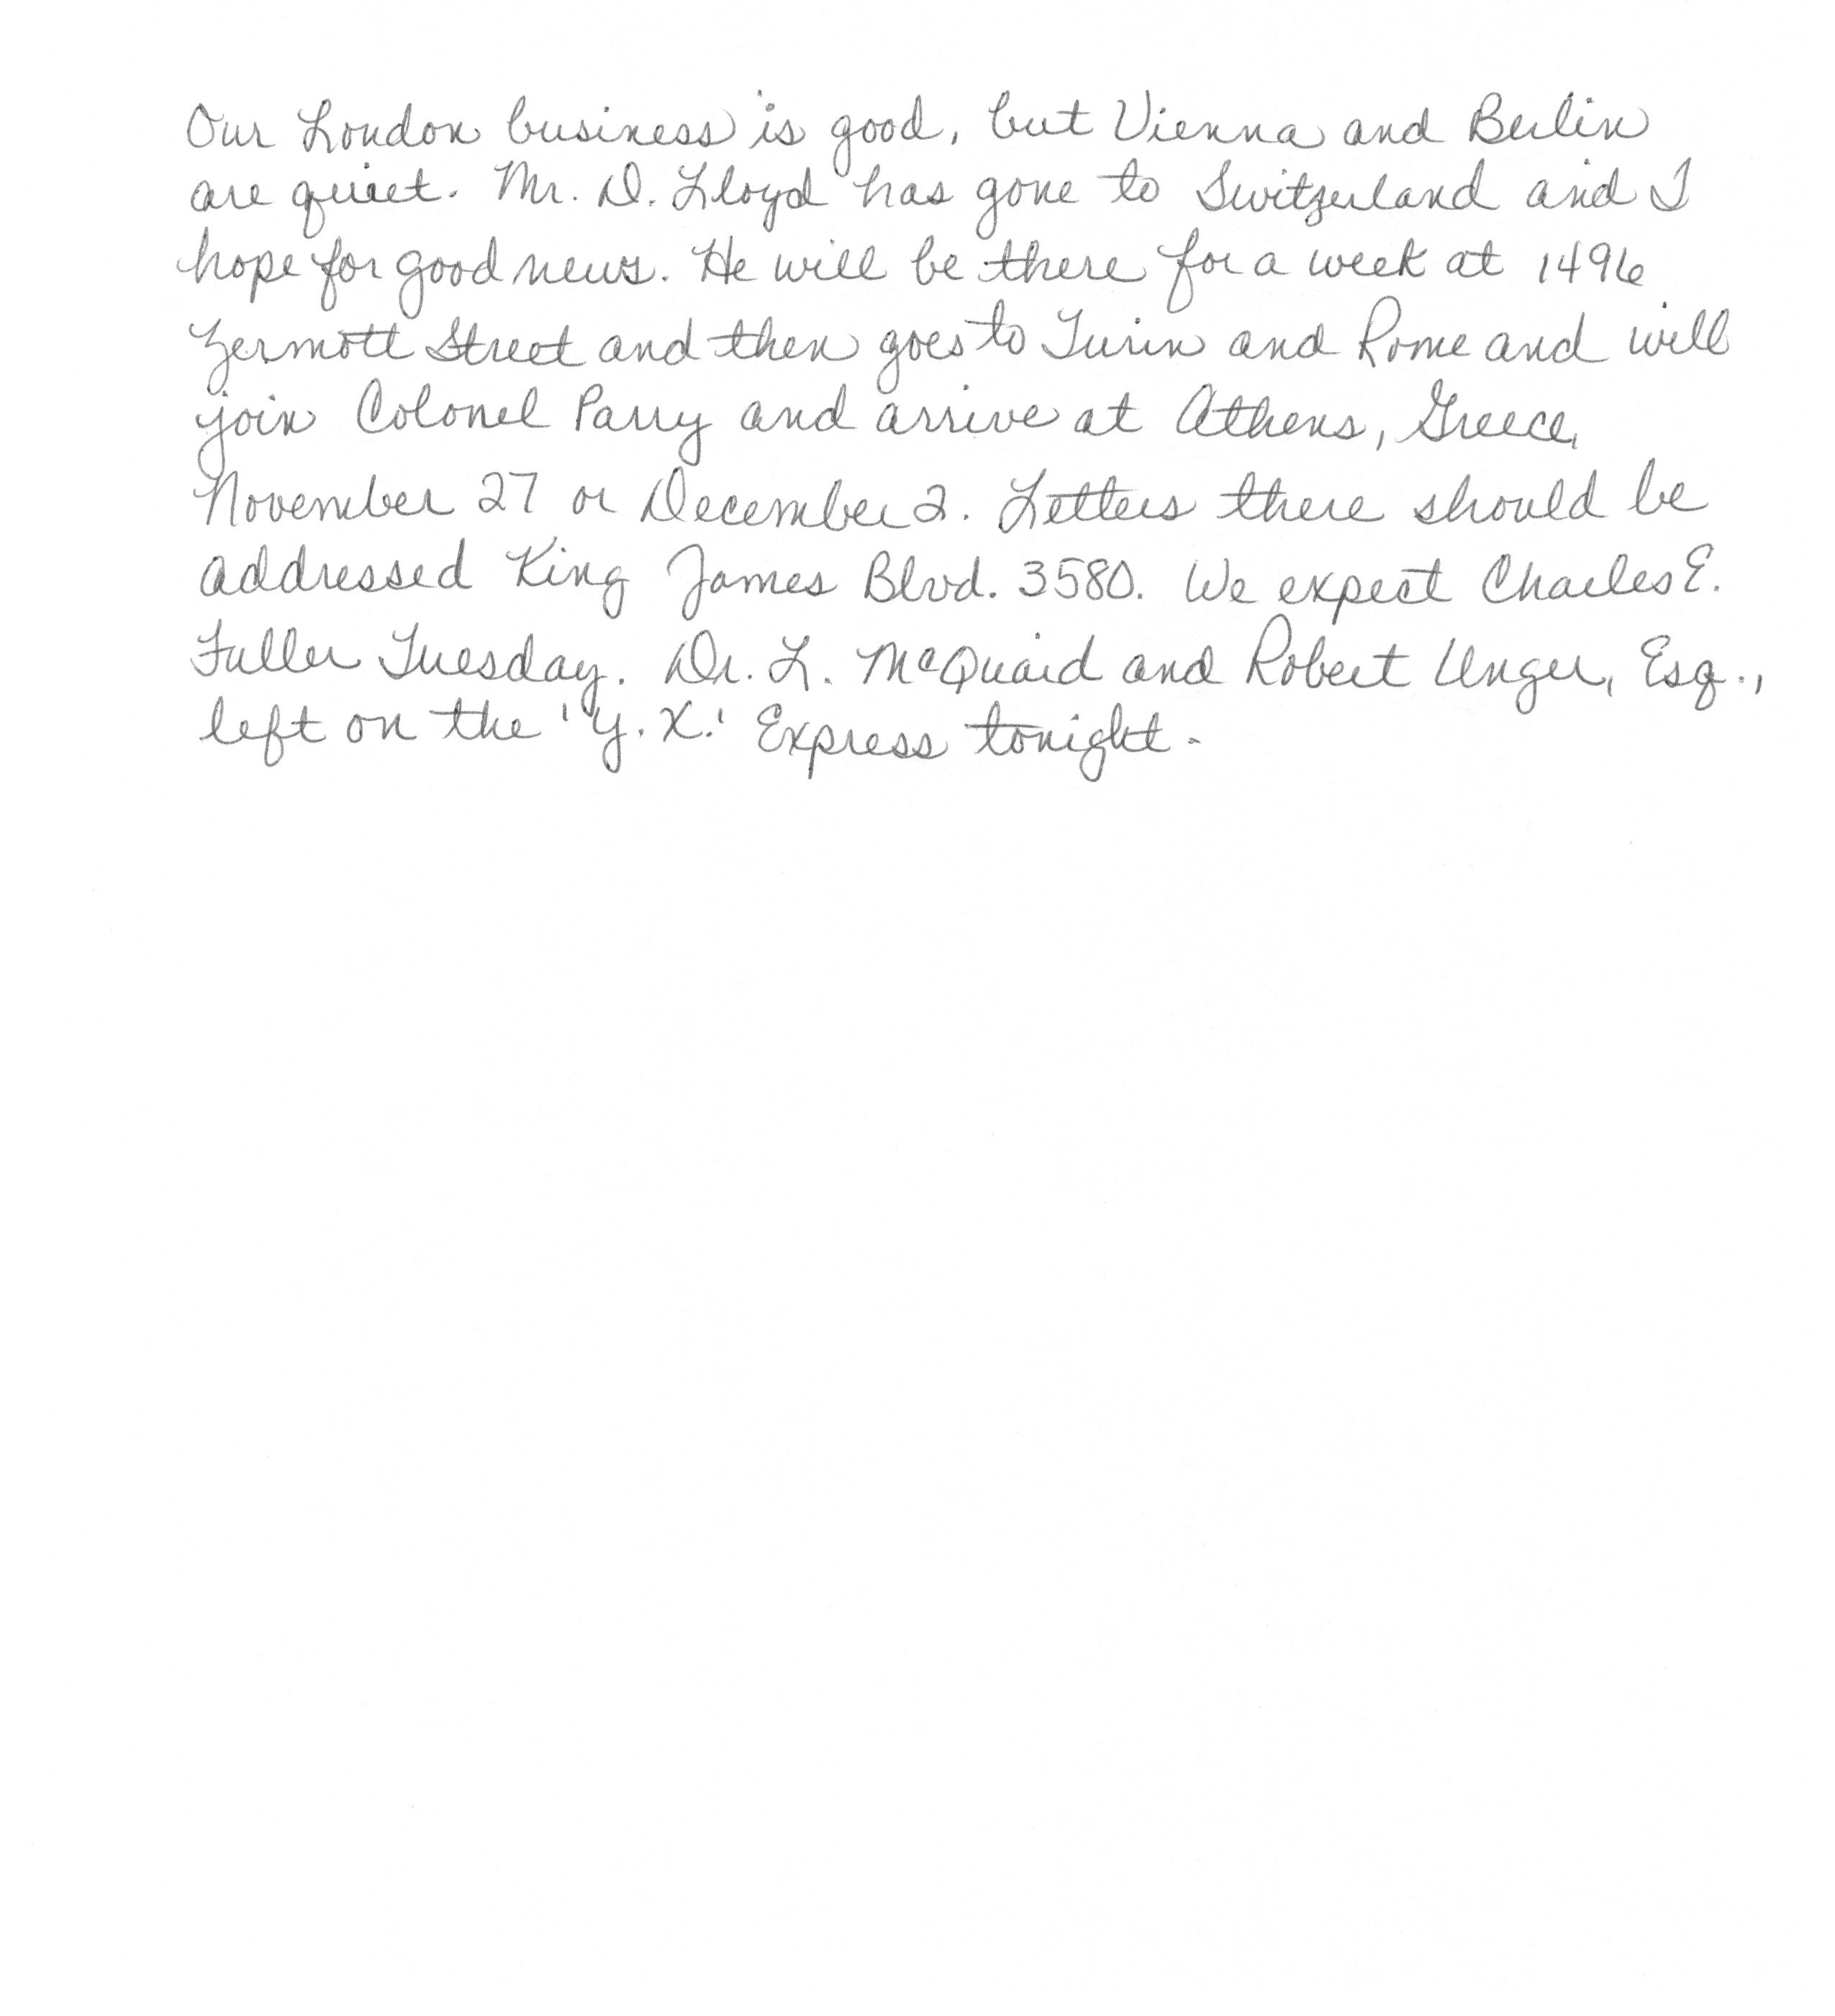 Our London business is good, but Vienna and Berlin
are quiet. Mr. D. Lloyd has gone to Switzerland and I
hope for good news. He will be there for a week at 1496
Zermott Street and then goes to Turin and Rome and will
join Colonel Parry and arrive at Athens, Greece,
November 27 or December 2. Letters there should be
addressed King James Blvd. 3580. We expect Charles E.
Fuller Tuesday. Dr. L. McQuaid and Robert Unger, Esq.,
left on the 'Y. X.' Express tonight.